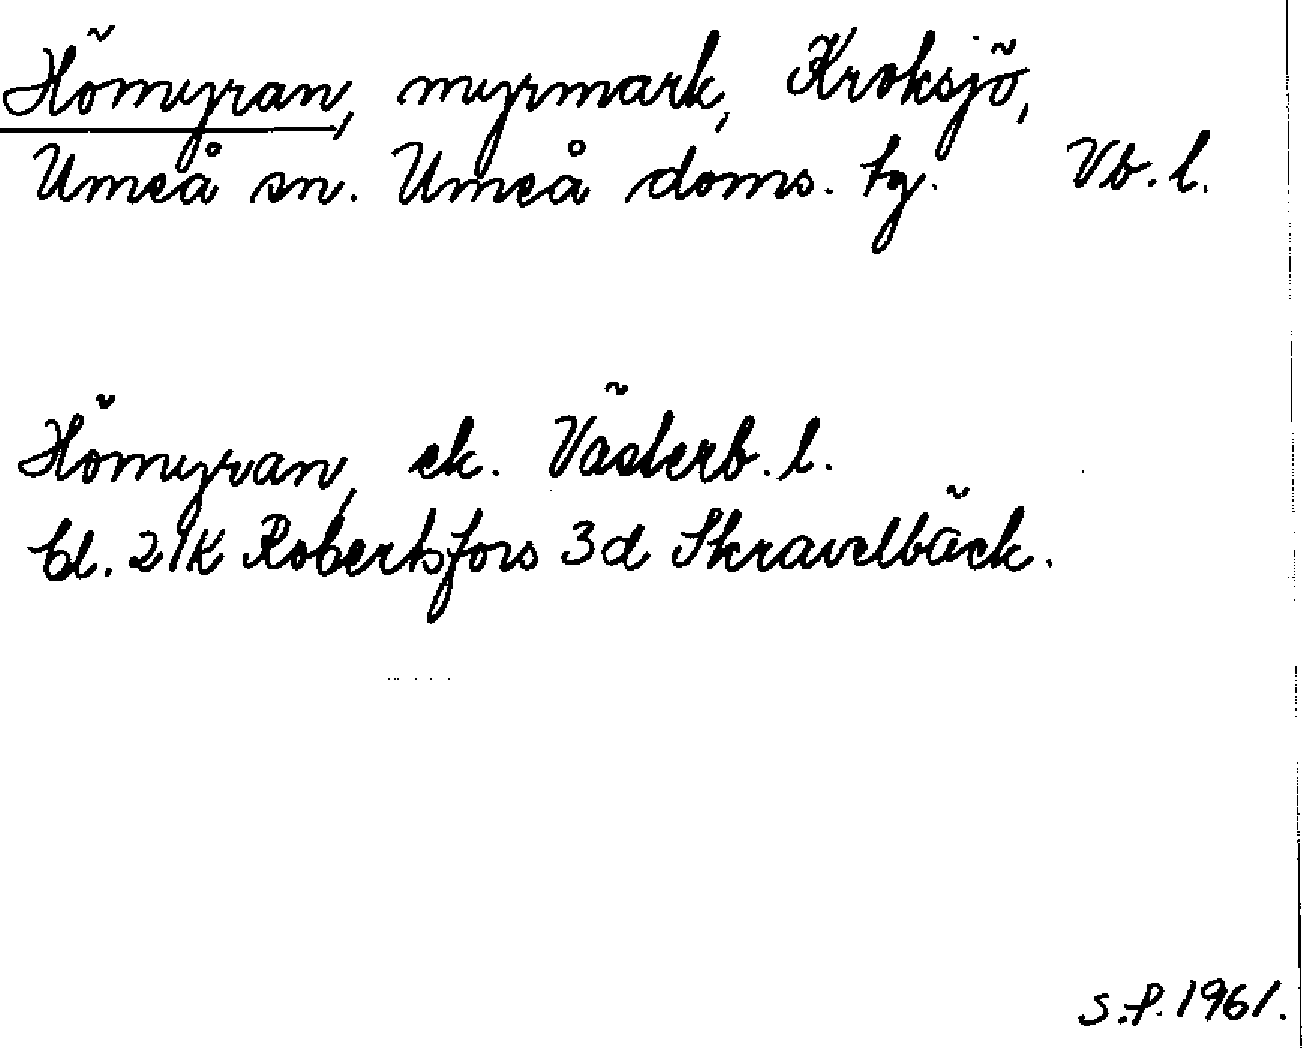 Hömyran, myrmark, Kroksjö,
Umeå sn. Umeå doms. tg. Vb. l.
Hömyran, ek. Västerb. l.
bl. 21K Robertsfors 3d Skravelbäck.
S.P. 1961.